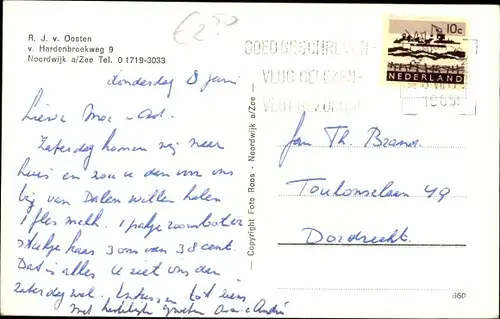 R. J. v. Oosten
v. Hardenbroekweg 9
Noordwijk a/Zee Tel. 0 1719-3033
€ 2,50
GOED GESCHREVEN -
VLUG GELEZEN -
VLUG BEZORGD
10c
NEDERLAND
Donderdag 8 Juni
Lieve Moe - Ant.
Zaterdag komen wij naar
huis en zou dan voor ons
bij van Dalen willen halen
1 fles melk. 1 pakje roomboter
stukje kaas 3 ons van 38 cent.
Dat is alles u ziet ons dan
Zaterdag wel. Intussen tot ziens
met hartelijke groeten André
Copyright Foto Roos - Noordwijk a/Zee
Jan Th. Brand.
Toulonselaan 49
Dordrecht.
660